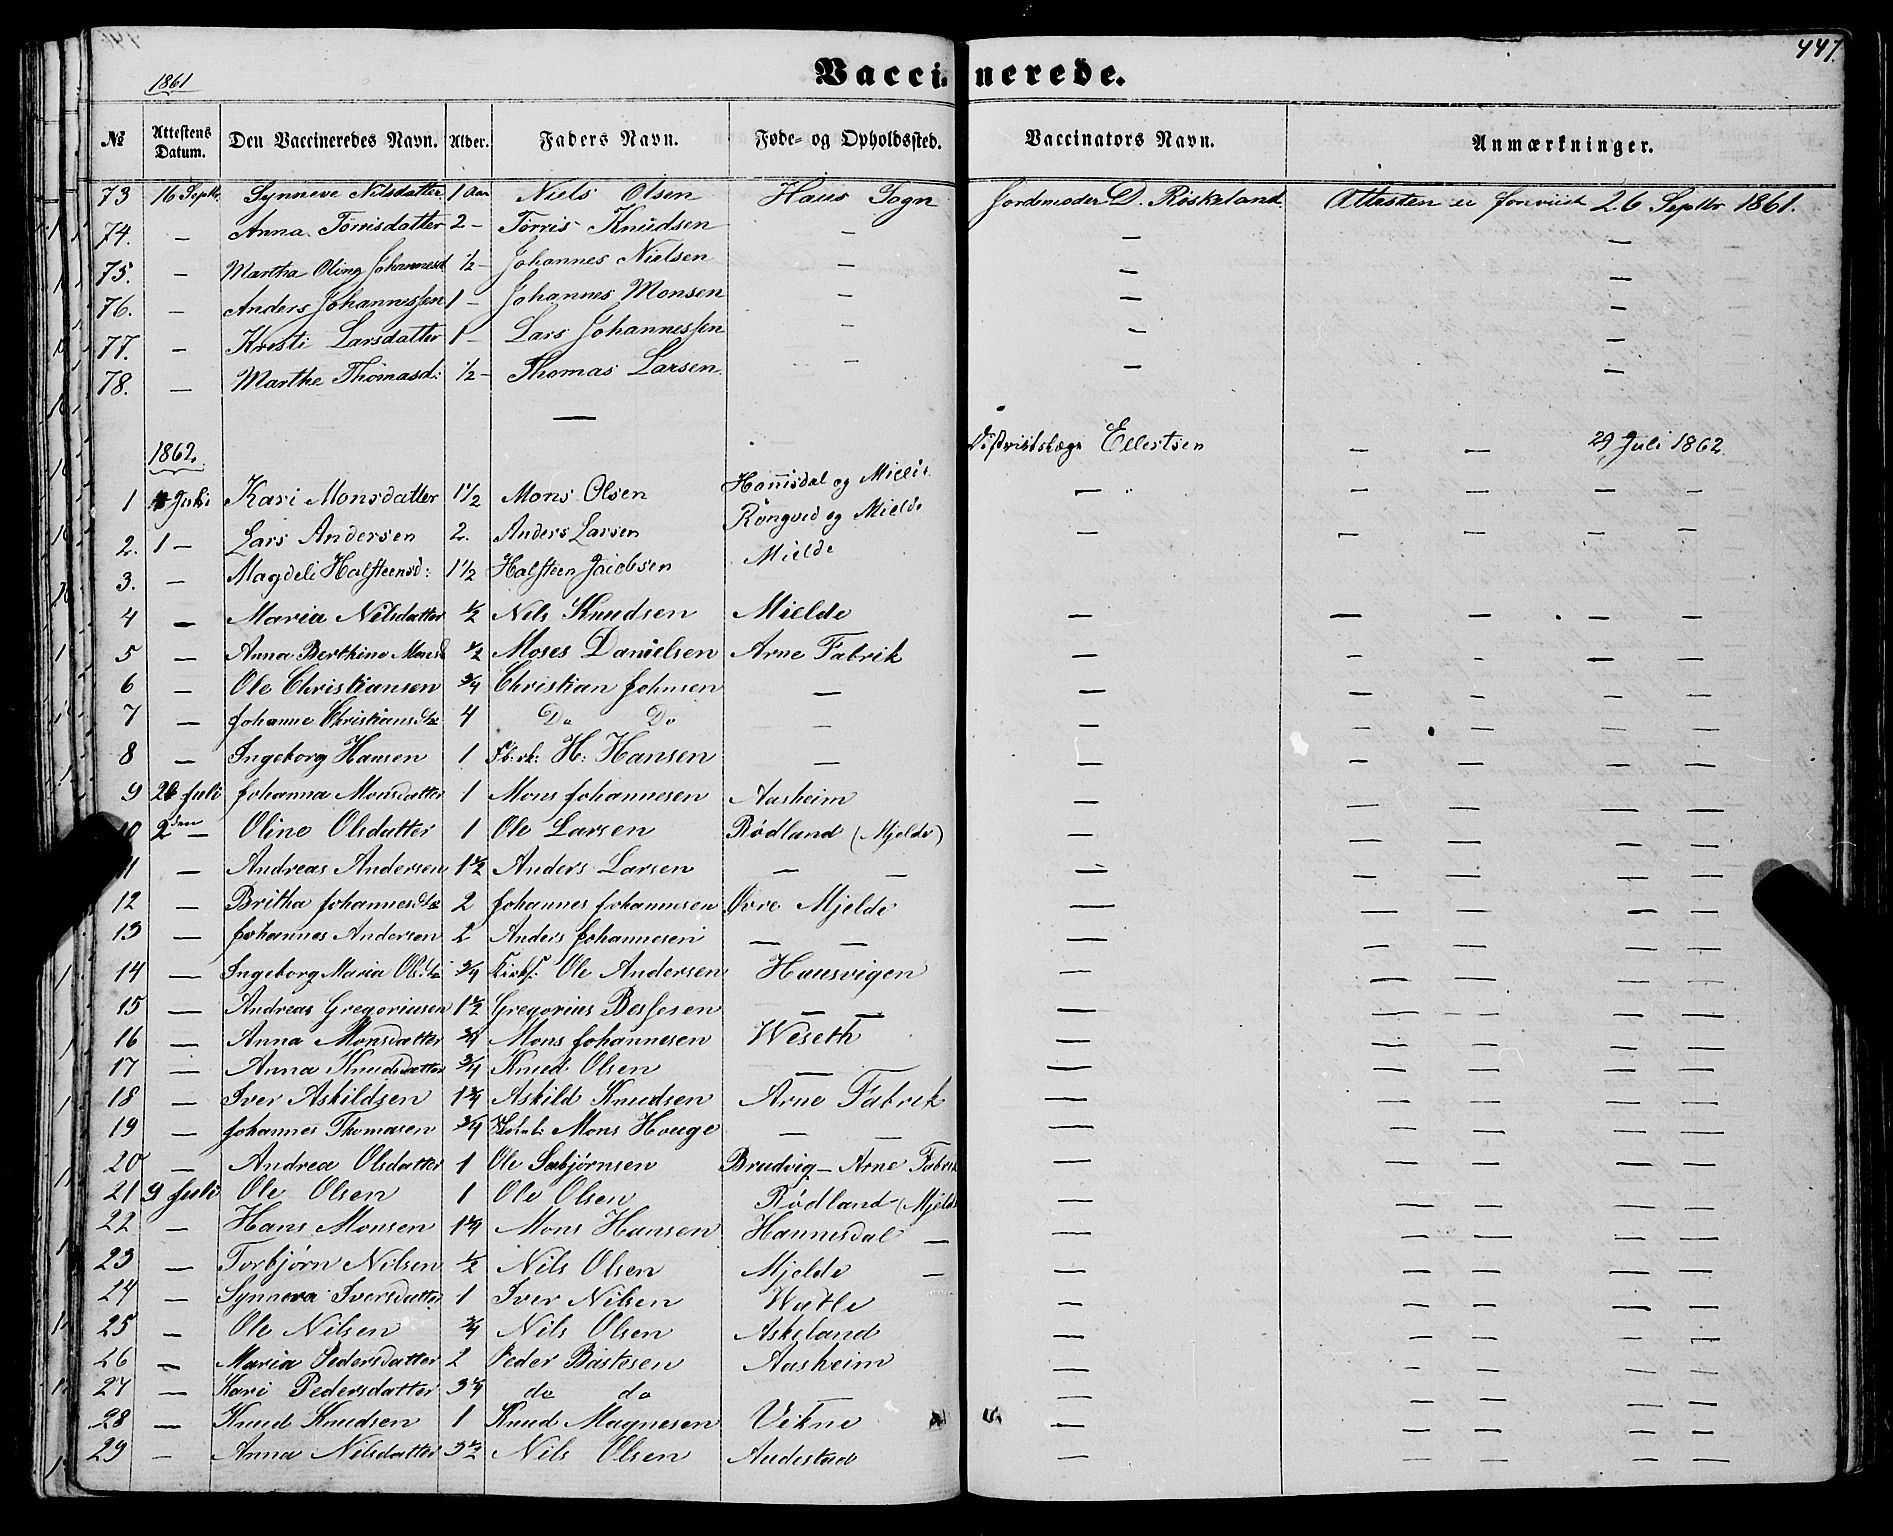 447.
1861
Vaccinerede.
№ Attestens Datum. Den Vaccineredes Navn. Alder. Faders Navn. Føde- og Opholdssted. Vaccinators Navn. Anmærkninger.
73 16 Septbr. Synneve Nilsdatter 1 Aar Niels Olsen Haus Sogn Jordemoder D. Röskeland. Attesten er foreviist 26 Septbr 1861.
74. — Anna Torrisdatter 2 — Torris Knudsen — — —
75. — Martha Oling Johannesd 1/2 — Johannes Nielsen — — —
76. — Anders Johannessen 1 — Johannes Monsen — — —
77. — Kristi Larsdatter 1 — Lars Johannessen — — —
78. — Marthe Thomasd: 1/2 — Thomas Larsen — — —
—
1862. Districtslæge Ellertsen — — 29 Juli 1862.
1 Juli Kari Monsdatter 1 1/2 Mons Olsen Hannisdal og Mielde — " — — — —
2. 1 — Lars Andersen 2. Anders Larsen Röngved og Mielde — — — — —
3. — Magdeli Halsteensd: 1 1/2 Halsteen Jacobsen Mielde
4 — Maria Nilsdatter 1/2 Nils Knudsen Mielde — — — — —
5 — Anna Berthine Monsd 1/2 Moses Danielsen Arne Fabrik — — — — —
6 — Ole Christiansen 3/4 Christian Johnsen — — — — — —
7 — Johanne Christiansdtr 4 Do Do — — — — — —
8 — Ingeborg Hansen 1 H: Hansen — — — — — —
9 26 Juli Johanna Monsdatter 1 Mons Johannesen Aasheim — — — — —
10 2den — Oline Olsdatter 1 Ole Larsen Rødland (Mjelde) — — — — —
11 — Andreas Andersen 1 1/2 Anders Larsen — — — — — — —
12 — Britha Johannesdtr 2 Johannes Johannesen Øvre Mjelde — — — — —
13 — Johannes Andersen 2 Anders Johannesen — — — — — — —
14 — Ingeborg Maria Olsdtr 3/4 Ole Andersen Hausvigen — — — — —
15 — Andreas Gregoriusen 1 1/2 Gregorius Bessesen — — — — — — —
16 — Anna Monsdatter 3/4 Mons Johannesen Weseth — — — — —
17 — Anna Knudsdatter 3/4 Knud Olsen — — — — — —
18 — Iver Askildsen 1 3/4 Askild Knudsen Arne Fabrik — — — — —
19 — Johannes Thomasen 3/4 Mons Houge — — — — — — —
20 — Andrea Olsdatter 1 Ole Sabjørnsen Brudvig — Arne Fabrik — — — — —
21 9 Juli Ole Olsen 1 Ole Olsen Rødland (Mjelde — — — — —
22 — Hans Monsen 1 1/4 Mons Hansen Hannisdal — — — — — —
23 — Torbjørn Nilsen 1/2 Nils Olsen Mjelde — — — — — —
24 — Synneva Iversdatter 1 Iver Nilsen Watle — — — — —
25 — Ole Nilsen 3/4 Nils Olsen Askeland — — — — —
26 — Maria Pedersdatter 2 Peder Bastesen Aasheim — — — — —
27 — Kari Pedersdatter 3 3/4 do do — — — — — —
28 — Knud Knudsen 1 Knud Magnesen Vikne — — — — —
29 — Anna Nilsdatter 3 1/2 Nils Olsen Audestad — — — — —